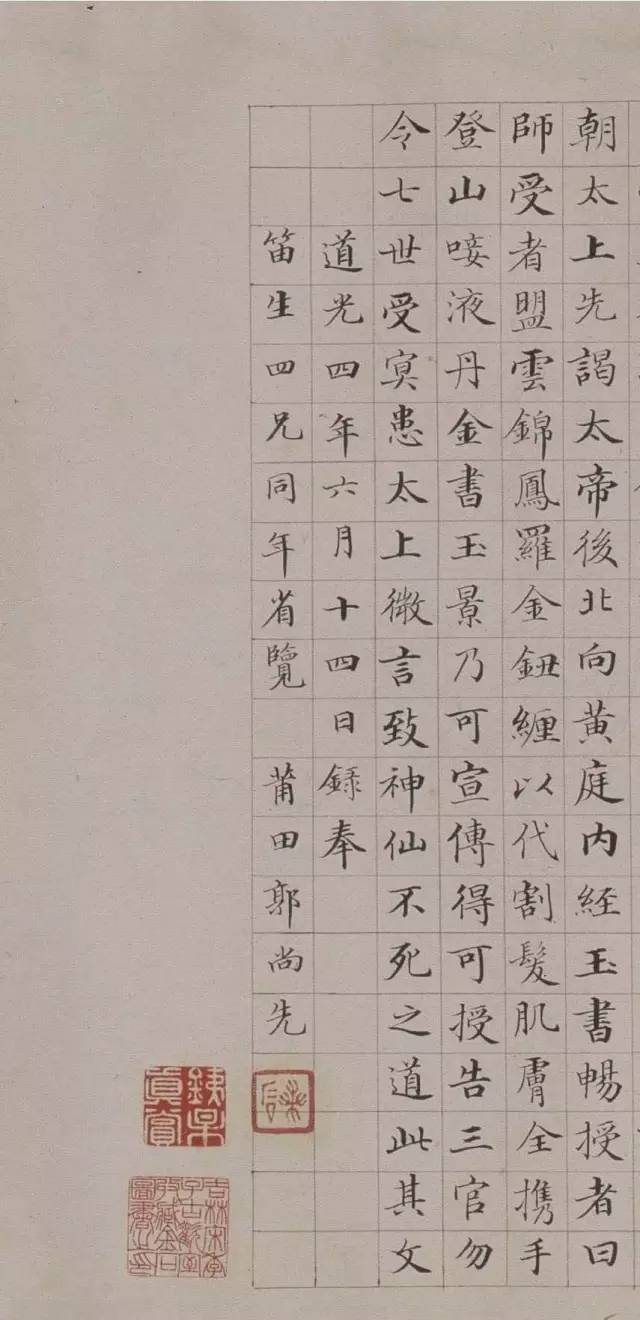 朝太上先謁太帝後北向黄庭内経玉書暢授者曰
師受者盟雲錦鳳羅金鈕纒以代割髪肌膚全攜手
登山唼液丹金書玉景乃可宣傳得可授告三官勿
令七世受冥患太上微言致神仙不死之道此其文
道光四年六月十四日錄奉
笛生四兄同年省覽 莆田郭尚先